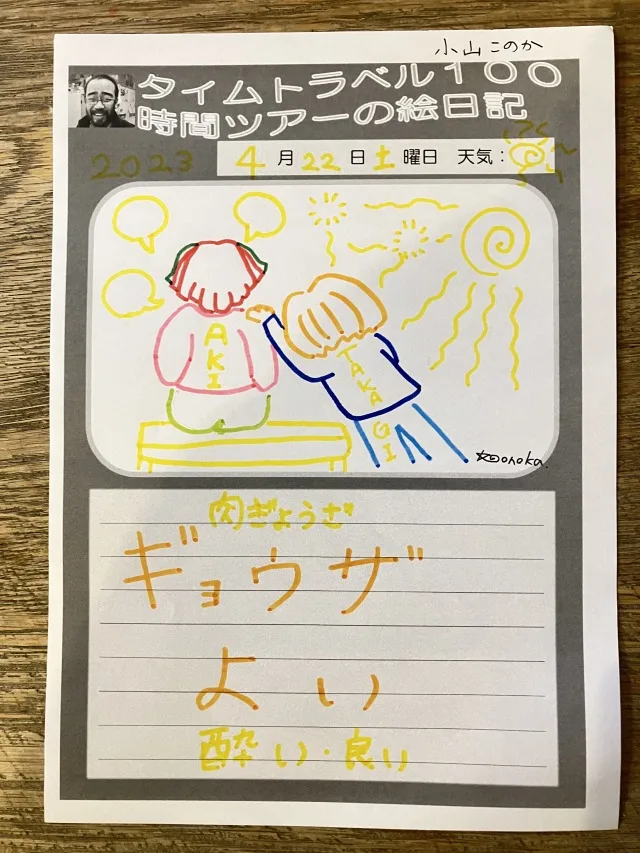 小山このか
タイムトラベル100
時間ツアーの絵日記
2023 4月22日土曜日 天気:
AKI
TAKAGI
konoka.
肉ぎょうざ
ギョウザ
よい
酔い・良い